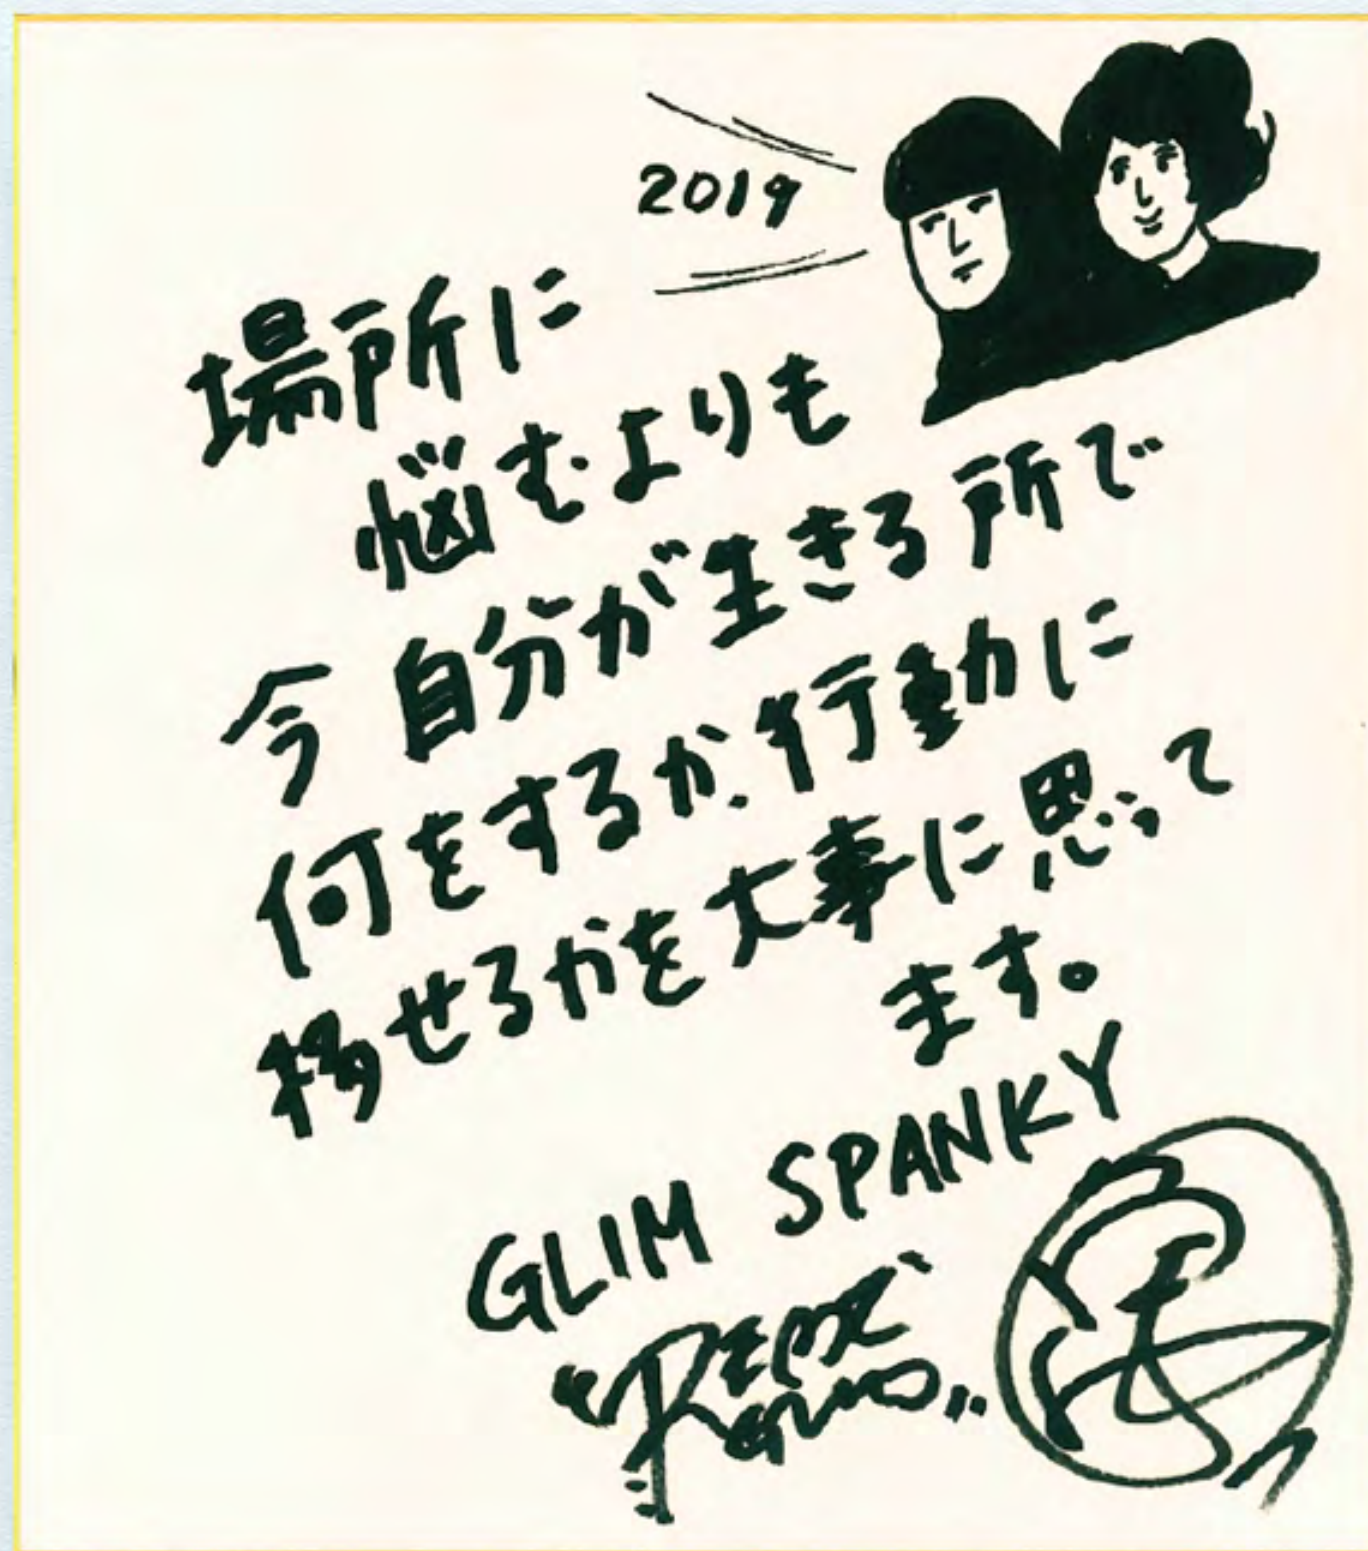 2019
場所に
悩むよりも
今自分が生きる所で
何をするか、行動に
移せるかを大事に思って
ます。
GLIM SPANKY